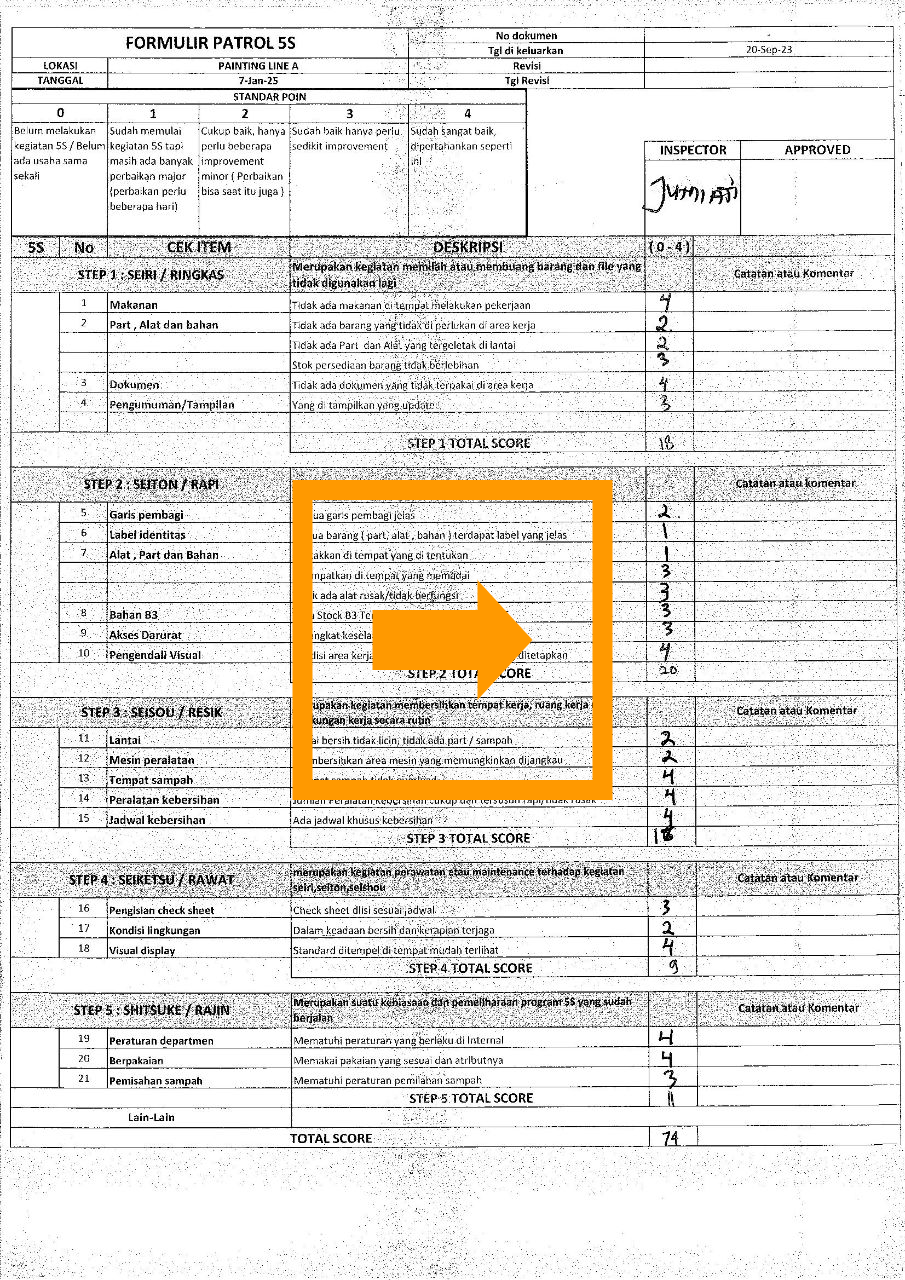 FORMULIR PATROL 5S
No dokumen -
Tgl di keluarkan 20-Sep-23
LOKASI PAINTING LINE A Revisi
TANGGAL 7-Jan-25 Tgl Revisi
STANDAR POIN
0 1 2 3 4
Belum melakukan kegiatan 5S / Belum ada usaha sama sekali
Sudah memulai kegiatan 5S tapi masih ada banyak perbaikan major (perbaikan perlu beberapa hari)
Cukup baik, hanya perlu beberapa improvement minor ( Perbaikan bisa saat itu juga )
Sudah baik hanya perlu sedikit improvement
Sudah sangat baik, dipertahankan seperti ini
INSPECTOR APPROVED
JUMIATI
5S No CEK ITEM DESKRIPSI ( 0 - 4 )
STEP 1 : SEIRI / RINGKAS Merupakan kegiatan memilah atau membuang barang dan file yang tidak digunakan lagi Catatan atau Komentar
1 Makanan Tidak ada makanan di tempat melakukan pekerjaan 4
2 Part , Alat dan bahan Tidak ada barang yang tidak di perlukan di area kerja 2
Tidak ada Part dan Alat yang tergeletak di lantai 2
Stok persediaan barang tidak berlebihan 3
3 Dokumen Tidak ada dokumen yang tidak terpakai di area kerja 4
4 Pengumuman/Tampilan Yang di tampilkan yang update 3
STEP 1 TOTAL SCORE 18
STEP 2 : SEITON / RAPI Catatan atau komentar
5 Garis pembagi ua garis pembagi jelas 2
6 Label identitas ua barang ( part, alat , bahan ) terdapat label yang jelas 1
7 Alat , Part dan Bahan akkan di tempat yang di tentukan 1
mpatkan di tempat yang memadai 3
k ada alat rusak/tidak berfungsi 3
8 Bahan B3 Stock B3 3
9 Akses Darurat 3
10 Pengendali Visual disi area kerja ditetapkan 4
STEP 2 TOTAL SCORE 20
STEP 3 : SEISOU / RESIK upakan kegiatan membersihkan tempat kerja, ruang kerja kungan kerja secara rutin Catatan atau Komentar
11 Lantai ai bersih tidak licin, tidak ada part / sampah 2
12 Mesin peralatan mbersihkan area mesin yang memungkinkan dijangkau 2
13 Tempat sampah 4
14 Peralatan kebersihan Jumlah Peralatan kebersihan cukup dan tersusun rapi/tidak rusak 4
15 Jadwal kebersihan Ada jadwal khusus kebersihan 4
STEP 3 TOTAL SCORE 16
STEP 4 : SEIKETSU / RAWAT merupakan kegiatan perawatan atau maintenance terhadap kegiatan seiri,seiton,seishou Catatan atau Komentar
16 Pengisian check sheet Check sheet diisi sesuai jadwal 3
17 Kondisi lingkungan Dalam keadaan bersih dan kerapian terjaga 2
18 Visual display Standard ditempel di tempat mudah terlihat 4
STEP 4 TOTAL SCORE 9
STEP 5 : SHITSUKE / RAJIN Merupakan suatu kebiasaan dan pemeliharaan program 5S yang sudah berjalan Catatan atau Komentar
19 Peraturan departmen Mematuhi peraturan yang berlaku di Internal 4
20 Berpakaian Memakai pakaian yang sesuai dan atributnya 4
21 Pemisahan sampah Mematuhi peraturan pemilahan sampah 3
STEP 5 TOTAL SCORE 11
Lain-Lain
TOTAL SCORE 74